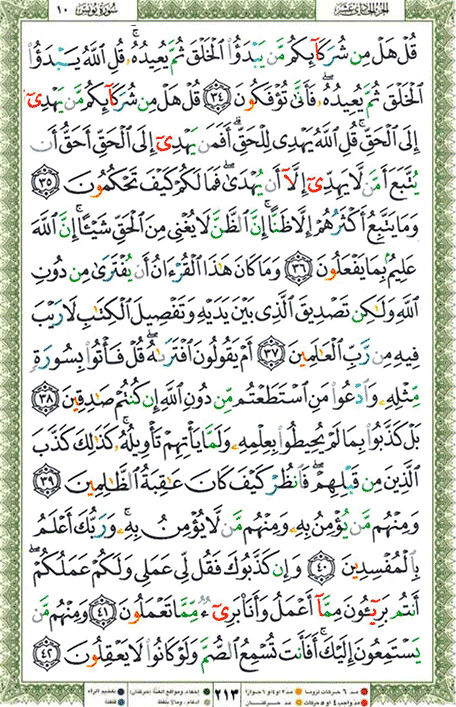 الجزء الحادي عشر
سورة يونس ١٠
قُلْ هَلْ مِن شُرَكَآئِكُم مَّن يَبْدَؤُا۟ الْخَلْقَ ثُمَّ يُعِيدُهُۥ ۚ قُلِ اللَّهُ يَبْدَؤُا۟
الْخَلْقَ ثُمَّ يُعِيدُهُۥ ۖ فَأَنَّىٰ تُؤْفَكُونَ ٣٤ قُلْ هَلْ مِن شُرَكَآئِكُم مَّن يَهْدِىٓ
إِلَى الْحَقِّ ۚ قُلِ اللَّهُ يَهْدِى لِلْحَقِّ ۗ أَفَمَن يَهْدِىٓ إِلَى الْحَقِّ أَحَقُّ أَن
يُتَّبَعَ أَمَّن لَّا يَهِدِّىٓ إِلَّآ أَن يُهْدَىٰ ۖ فَمَا لَكُمْ كَيْفَ تَحْكُمُونَ ٣٥
وَمَا يَتَّبِعُ أَكْثَرُهُمْ إِلَّا ظَنًّا ۚ إِنَّ الظَّنَّ لَا يُغْنِى مِنَ الْحَقِّ شَيْـًٔا ۚ إِنَّ اللَّهَ
عَلِيمٌۢ بِمَا يَفْعَلُونَ ٣٦ وَمَا كَانَ هَٰذَا الْقُرْءَانُ أَن يُفْتَرَىٰ مِن دُونِ
اللَّهِ وَلَٰكِن تَصْدِيقَ الَّذِى بَيْنَ يَدَيْهِ وَتَفْصِيلَ الْكِتَٰبِ لَا رَيْبَ
فِيهِ مِن رَّبِّ الْعَٰلَمِينَ ٣٧ أَمْ يَقُولُونَ افْتَرَىٰهُ ۖ قُلْ فَأْتُوا۟ بِسُورَةٍ
مِّثْلِهِۦ وَادْعُوا۟ مَنِ اسْتَطَعْتُم مِّن دُونِ اللَّهِ إِن كُنتُمْ صَٰدِقِينَ ٣٨
بَلْ كَذَّبُوا۟ بِمَا لَمْ يُحِيطُوا۟ بِعِلْمِهِۦ وَلَمَّا يَأْتِهِمْ تَأْوِيلُهُۥ ۚ كَذَٰلِكَ كَذَّبَ
الَّذِينَ مِن قَبْلِهِمْ ۖ فَانظُرْ كَيْفَ كَانَ عَٰقِبَةُ الظَّٰلِمِينَ ٣٩
وَمِنْهُم مَّن يُؤْمِنُ بِهِۦ وَمِنْهُم مَّن لَّا يُؤْمِنُ بِهِۦ ۚ وَرَبُّكَ أَعْلَمُ
بِالْمُفْسِدِينَ ٤٠ وَإِن كَذَّبُوكَ فَقُل لِّى عَمَلِى وَلَكُمْ عَمَلُكُمْ ۖ
أَنتُم بَرِيٓـُٔونَ مِمَّآ أَعْمَلُ وَأَنَا۠ بَرِىٓءٌ مِّمَّا تَعْمَلُونَ ٤١ وَمِنْهُم مَّن
يَسْتَمِعُونَ إِلَيْكَ ۚ أَفَأَنتَ تُسْمِعُ الصُّمَّ وَلَوْ كَانُوا۟ لَا يَعْقِلُونَ ٤٢
مد ٦ حركات لزوما مد ٢ او ٤ او ٦ جوازا
مد واجب ٤ او ٥ حركات مد حركتان
٢١٣
إخفاء، ومواقع الغنة (حركتان)
ادغام، وما لا يلفظ
تفخيم الراء
قلقلة